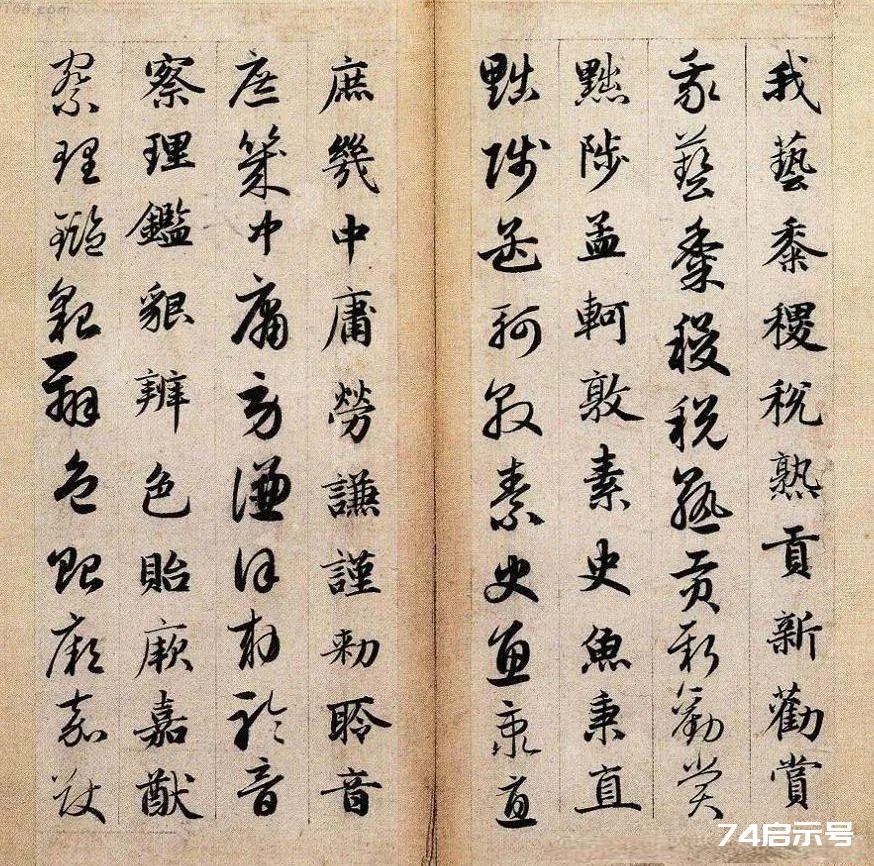 我藝黍稷稅熟貢新勸賞
我藝黍稷稅熟貢新勸賞
黜陟孟軻敦素史魚秉直
黜陟孟軻敦素史魚秉直
庶幾中庸勞謙謹勑聆音
庶幾中庸勞謙謹勑聆音
察理鑑貌辨色貽厥嘉猷
察理鑑貌辨色貽厥嘉猷
74启示号